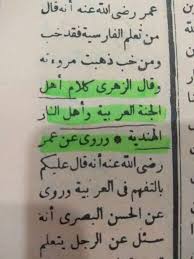 عمر رضى الله عنه أنه قال
من تعلم الفارسية فقد خب
ومن خب ذهبت مروءته
وقال الزهرى كلام أهل
الجنة العربية وأهل النار
الهندية * وروى عن عمر
رضى الله عنه أنه قال عليكم
بالتفهم فى العربية وروى
عن الحسن البصرى أنه
سئل عن الرجل يتعلم